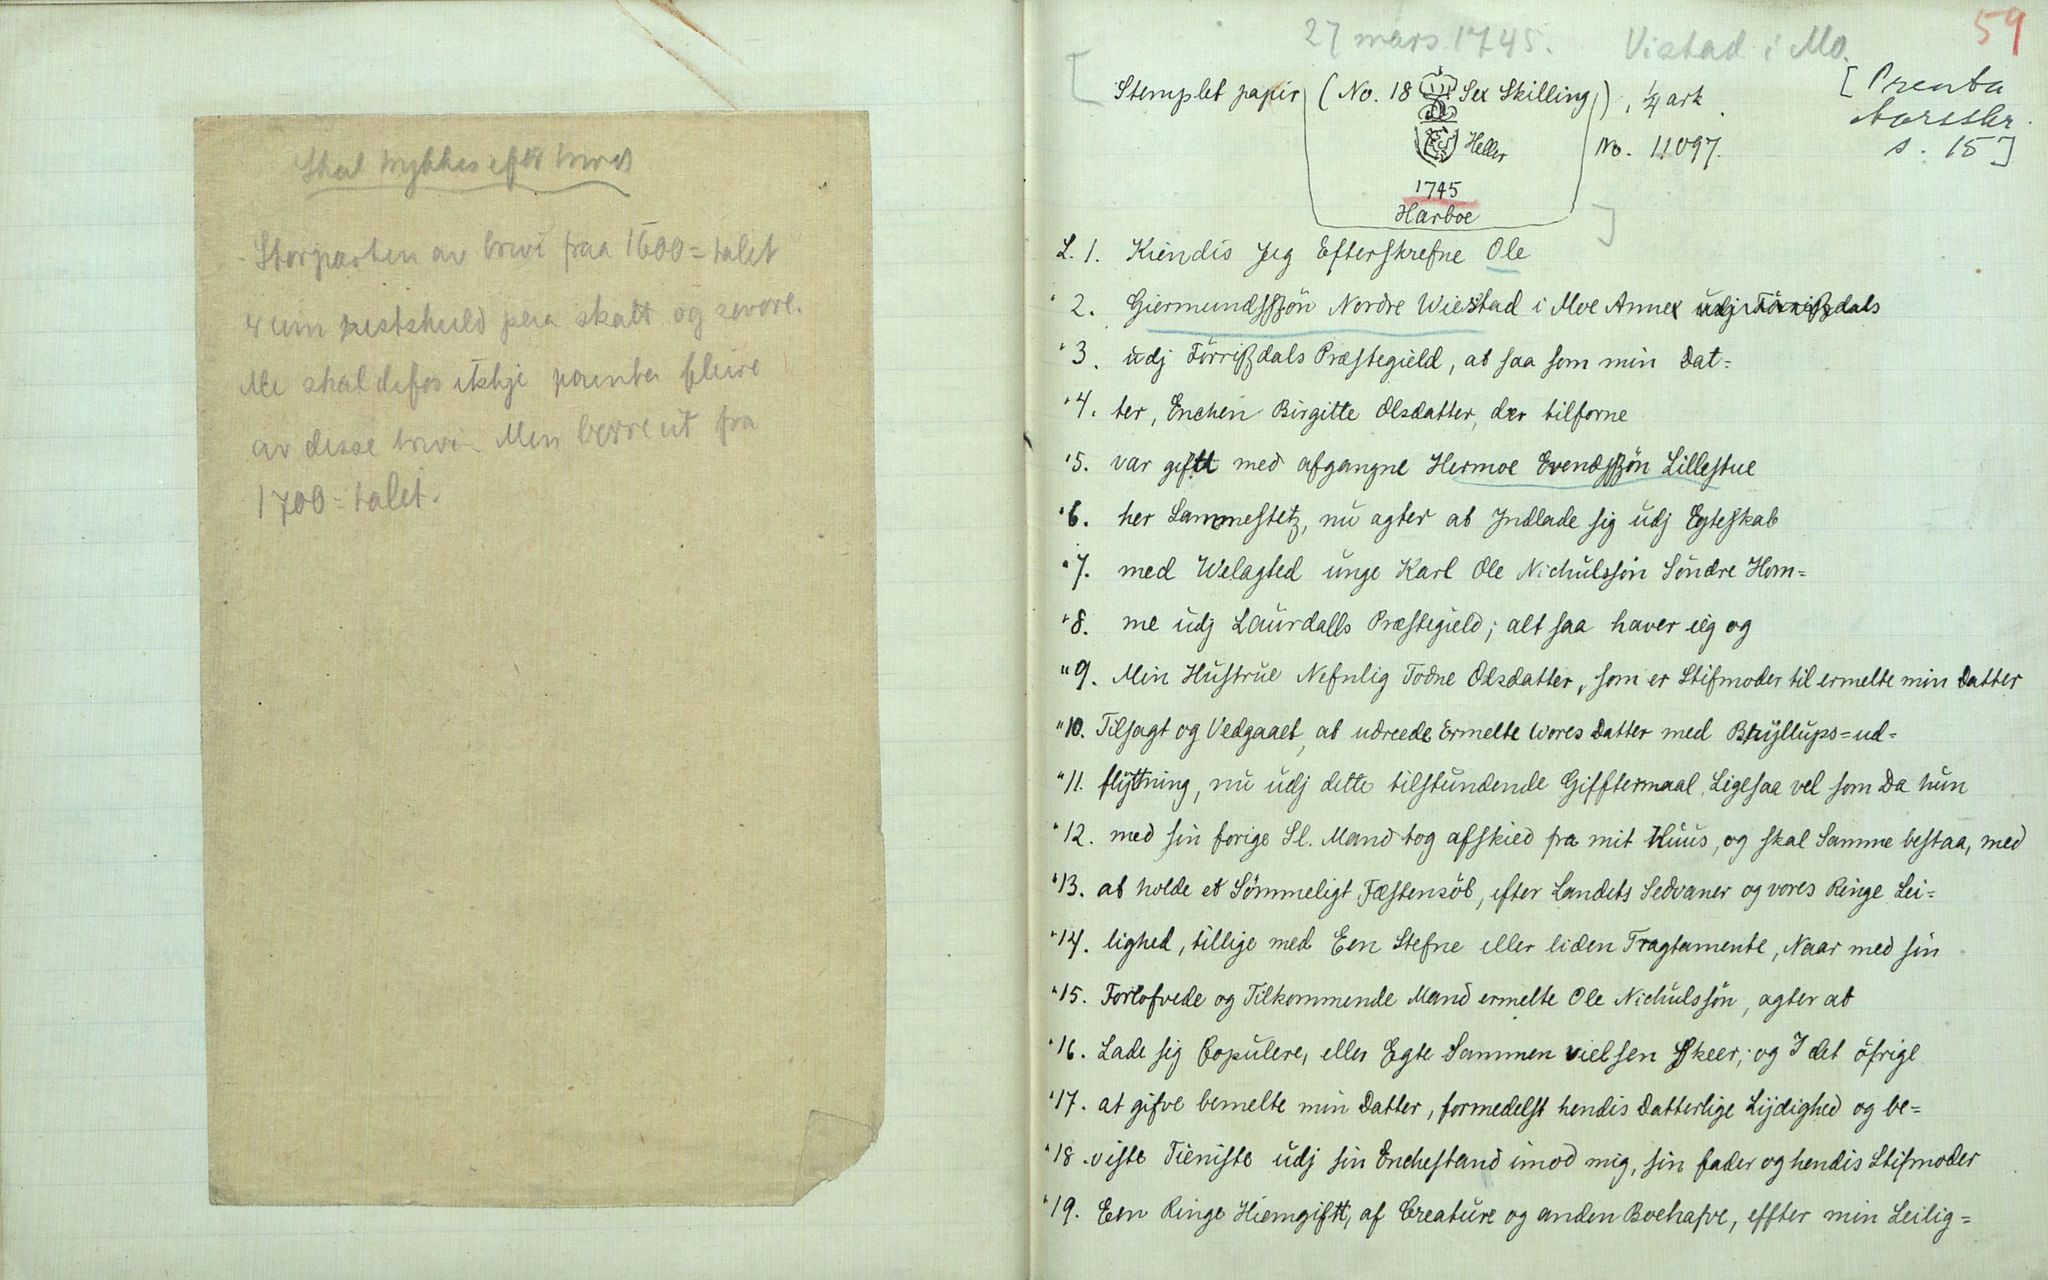 Skal trykkes efter brevet
Storparten av brevi fraa 1600-talet
er um restskuld paa skatt og
Me skal difor itkji prenta fleire
av desse brevi. Men berre ut fra
1700-talet.
27 mars 1745. Vistad i Mo. 59
[Stemplet papir (No. 18 Sex Skilling), 1/4 ark. [Prenta
Aarsskr.
Heller No. 11097. s. 15]
1745
Harboe ]
L. 1. Kiendis Jeg Efterskrefne Ole
" 2. Giermundsßøn Nordre Wiestad i Moe Annex
" 3. udj Tørrißdals Præstegield, at saa som min Dat=
" 4. ter, Enchen Birgitte Olsdatter, der tilforne
" 5. var giftt med afgangne Hermoe Evendsßøn Lillestue
" 6. her Sammestetz, nu agter at Indlade sig udj Egteskab
" 7. med Welagted unge Karl Ole Nichulssøn Søndre Hom=
" 8. me udj Laurdalls Præstegield; alt saa haver ieg og
" 9. Min Hustrue Nefnlig Todne Olsdatter, som er Stifmoder til ermelte min Datter
" 10. Tilsagt og Vedgaaet, at udreede Ermelte Wores Datter med Bryllups=ud=
" 11. flÿttning, nu udj dette tilstundende Gifftermaal. Ligesaa vel som Da hun
" 12. med sin forige Sl. Mand tog afskied fra mit Huus, og skal Samme bestaa, med
" 13. at holde et Sømmeligt Fæstensøl, efter Landets Sedvaner og vores Ringe Lei=
" 14. lighed, tillige med Een Stefne eller liden Tragtamente, Naar med sin
" 15. Forlofvede og Tilkommende Mand ermelte Ole Nichulssøn, agter at
" 16. Lade sig Copulere, eller Egte Sammen vielsen Skeer; og I det øfrige
" 17. at gifve bemelte min Datter, formedelst hendis Datterlige Lÿdighed og be=
" 18. viste Tieniste udj sin Enchestand imod mig, sin fader og hendis Stifmoder
" 19. Een Ringe Hiemgiftt, af Creature og anden Boehafve, effter min Leilig=